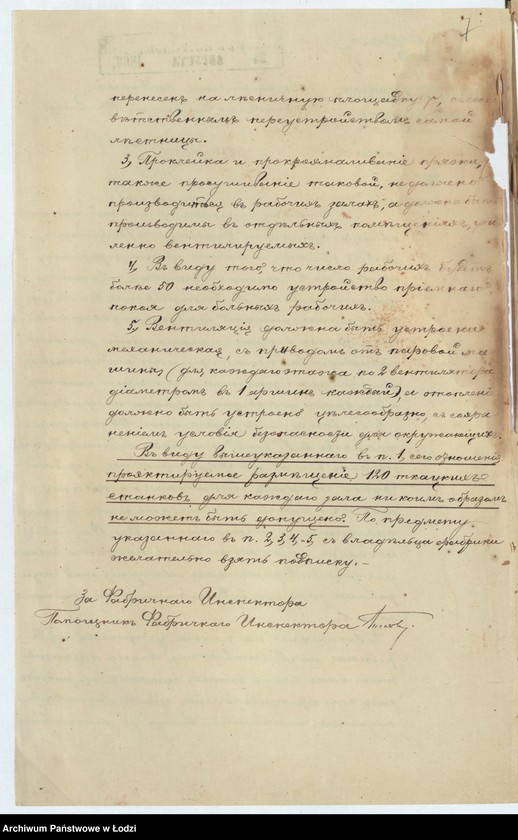 7
перенесенъ на лѣстничную площадку,
соотвѣтственнымъ переустройствомъ самой
лѣстницы.
3, Проклейка и прокрахмаливаніе пряжи,
также просушиваніе таковой, не должно
производиться въ рабочихъ залахъ, а должно быть
производимы въ отдѣльныхъ помѣщеніяхъ,
вентилируемыхъ.
4, Въ виду того, что число рабочихъ будетъ
болѣе 50 необходимо устройство пріемнаго
покоя для больныхъ рабочихъ.
5, Вентиляція должна быть устроена
механическая, съ приводомъ отъ паровой ма
шины (для каждаго этажа по 2 вентилятора
діаметромъ въ 1 аршинъ каждый), а отопленіе
должно быть устроено цѣлесообразно, съ сохра
неніемъ условія безопасности для окружающихъ.
Въ виду вышеуказаннаго въ п. 1, сего отношенія
проэктируемое размѣщеніе 120 ткацкихъ
станковъ для каждаго зала ни коимъ образомъ
не можетъ быть допущено. По предмету,
указаннаго въ п. 2, 3, 4, 5, съ владѣльца фабрики
желательно взять подписку. —
За Фабричнаго Инспектора
Помощникъ Фабричнаго Инспектора
Archiwum Państwowe w Łodzi